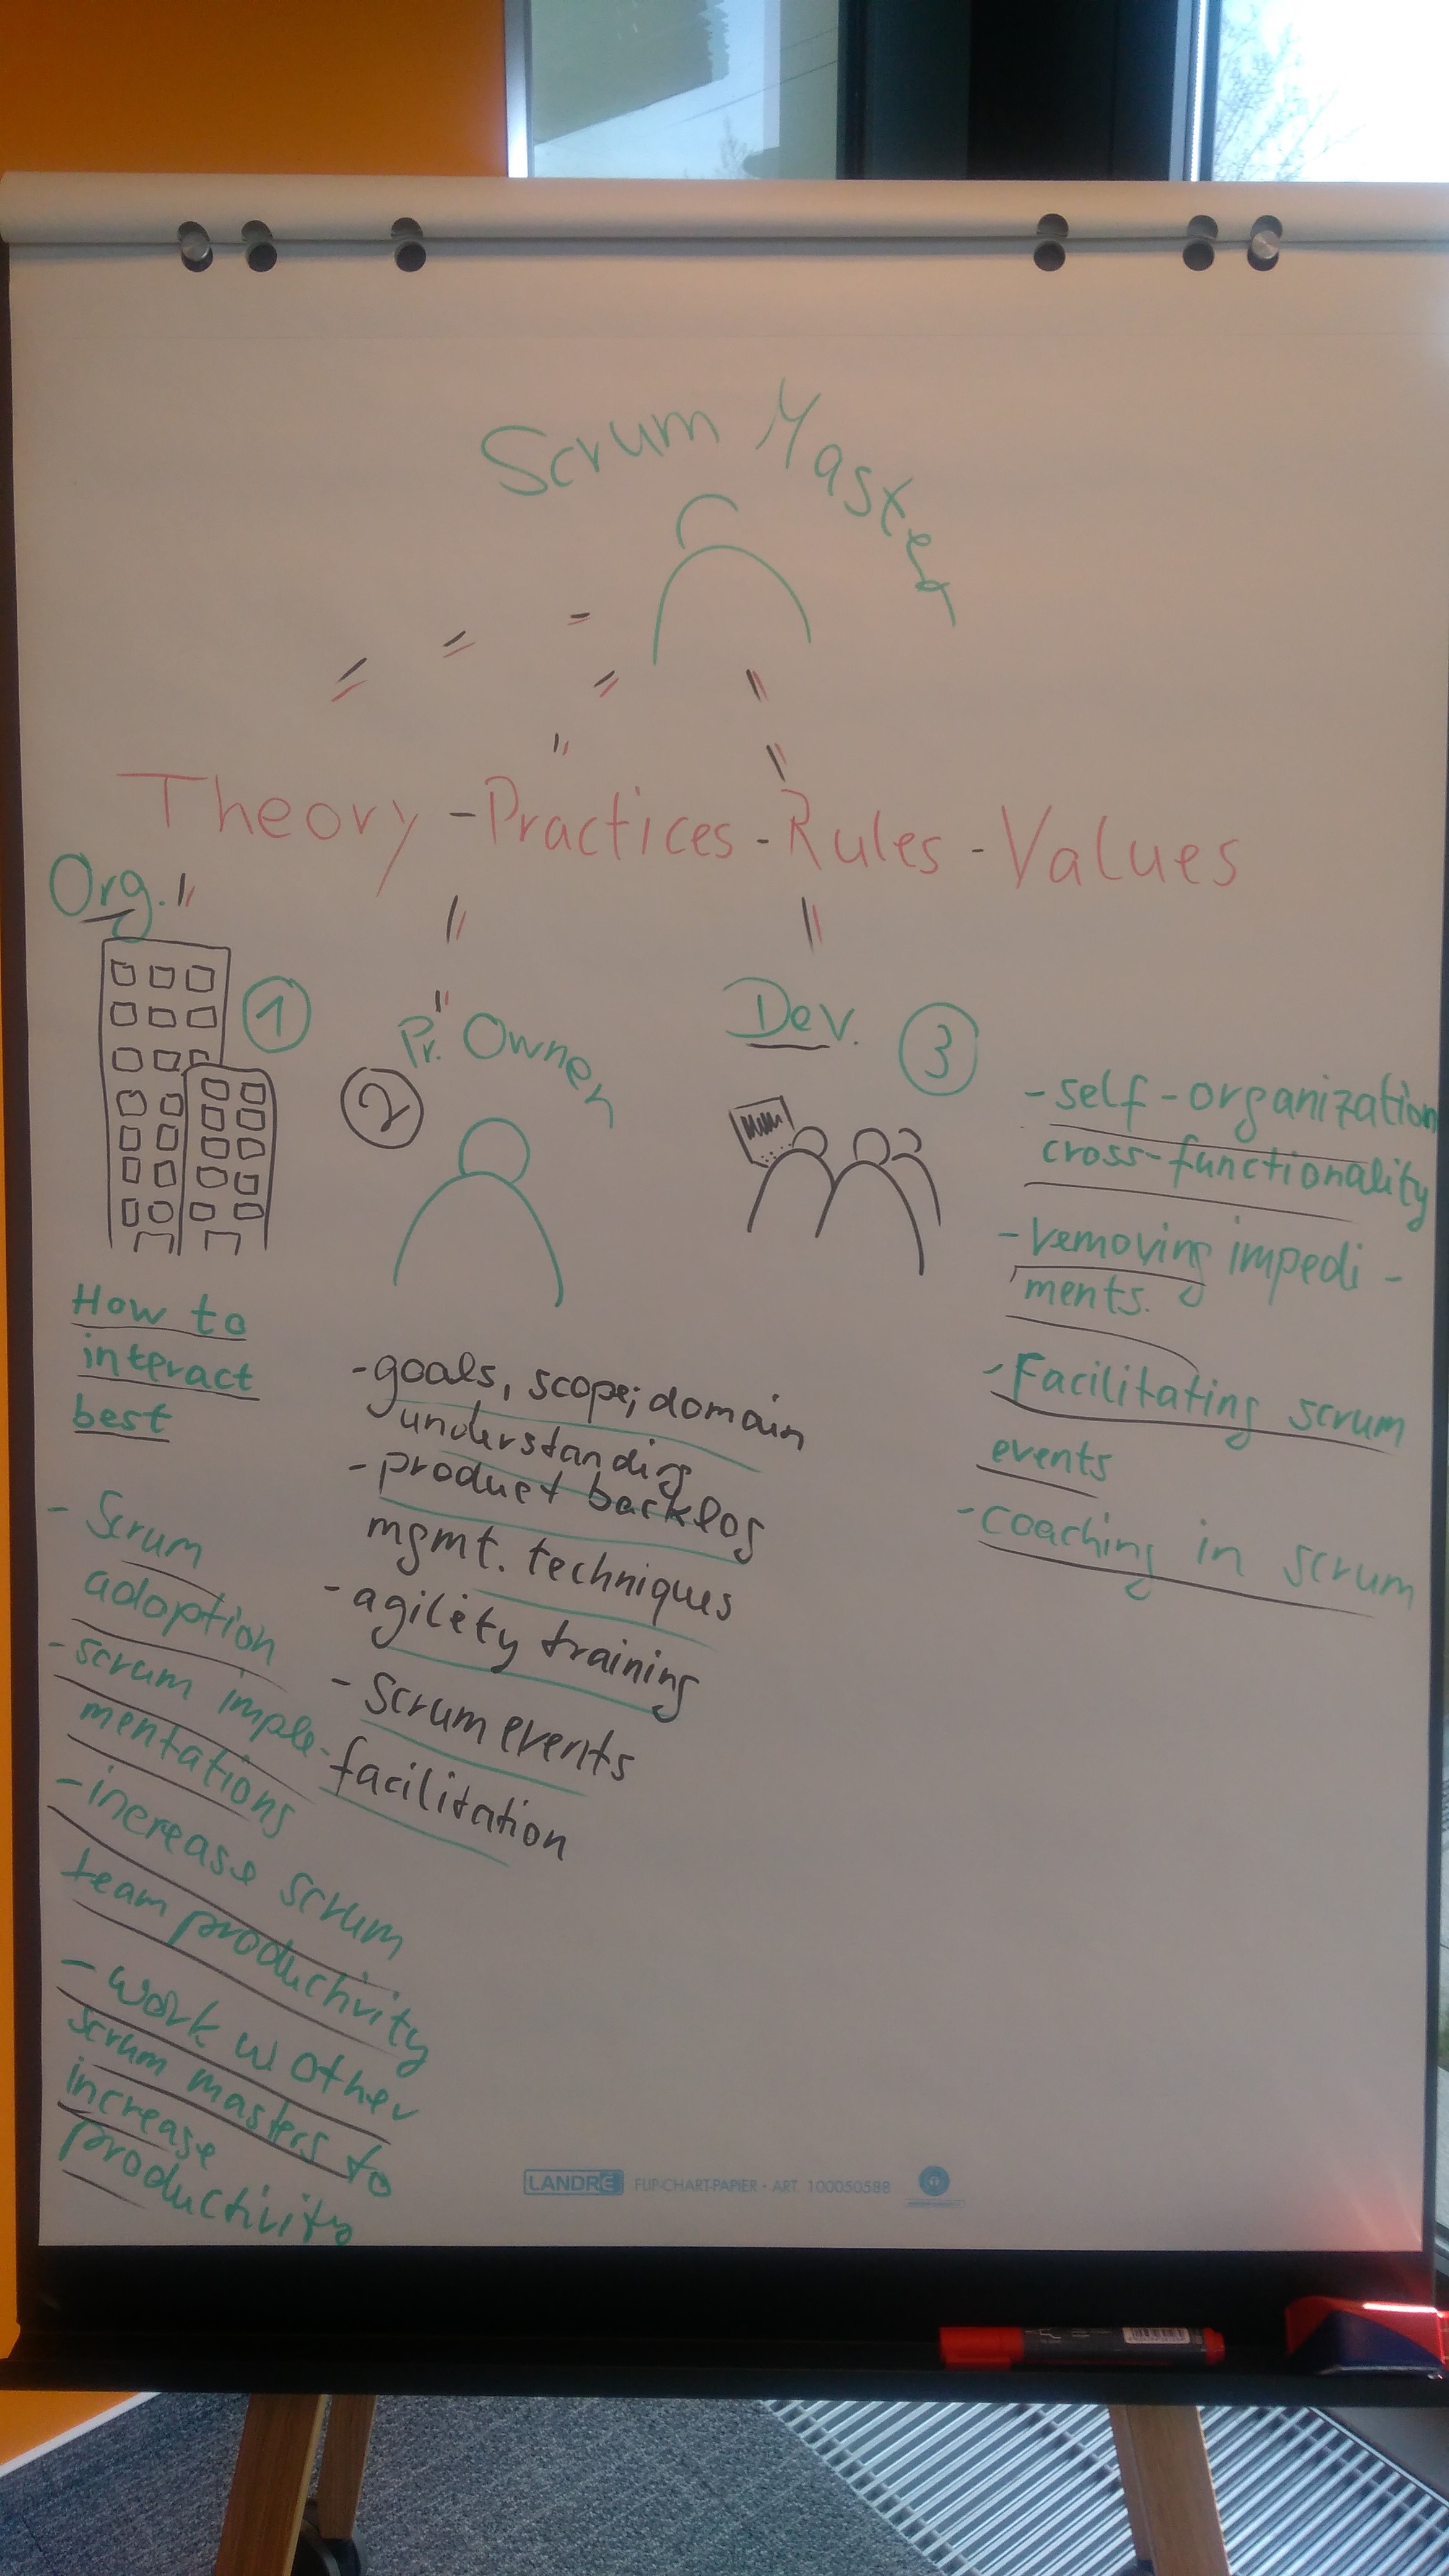 Scrum Master
Theory - Practices - Rules - Values
Org.
1
How to
interact
best
- Scrum
adoption
- scrum imple-
mentations
- increase scrum
team productivity
- work w other
scrum masters to
increase
productivity
2
Pr. Owner
- goals, scope; domain
understanding
- product backlog
mgmt. techniques
- agility training
- Scrum events
facilitation
Dev.
3
- self-organization
cross-functionality
- removing impedi-
ments.
- Facilitating scrum
events
- coaching in scrum
LANDRÉ FLIP-CHART-PAPIER • ART. 100050588